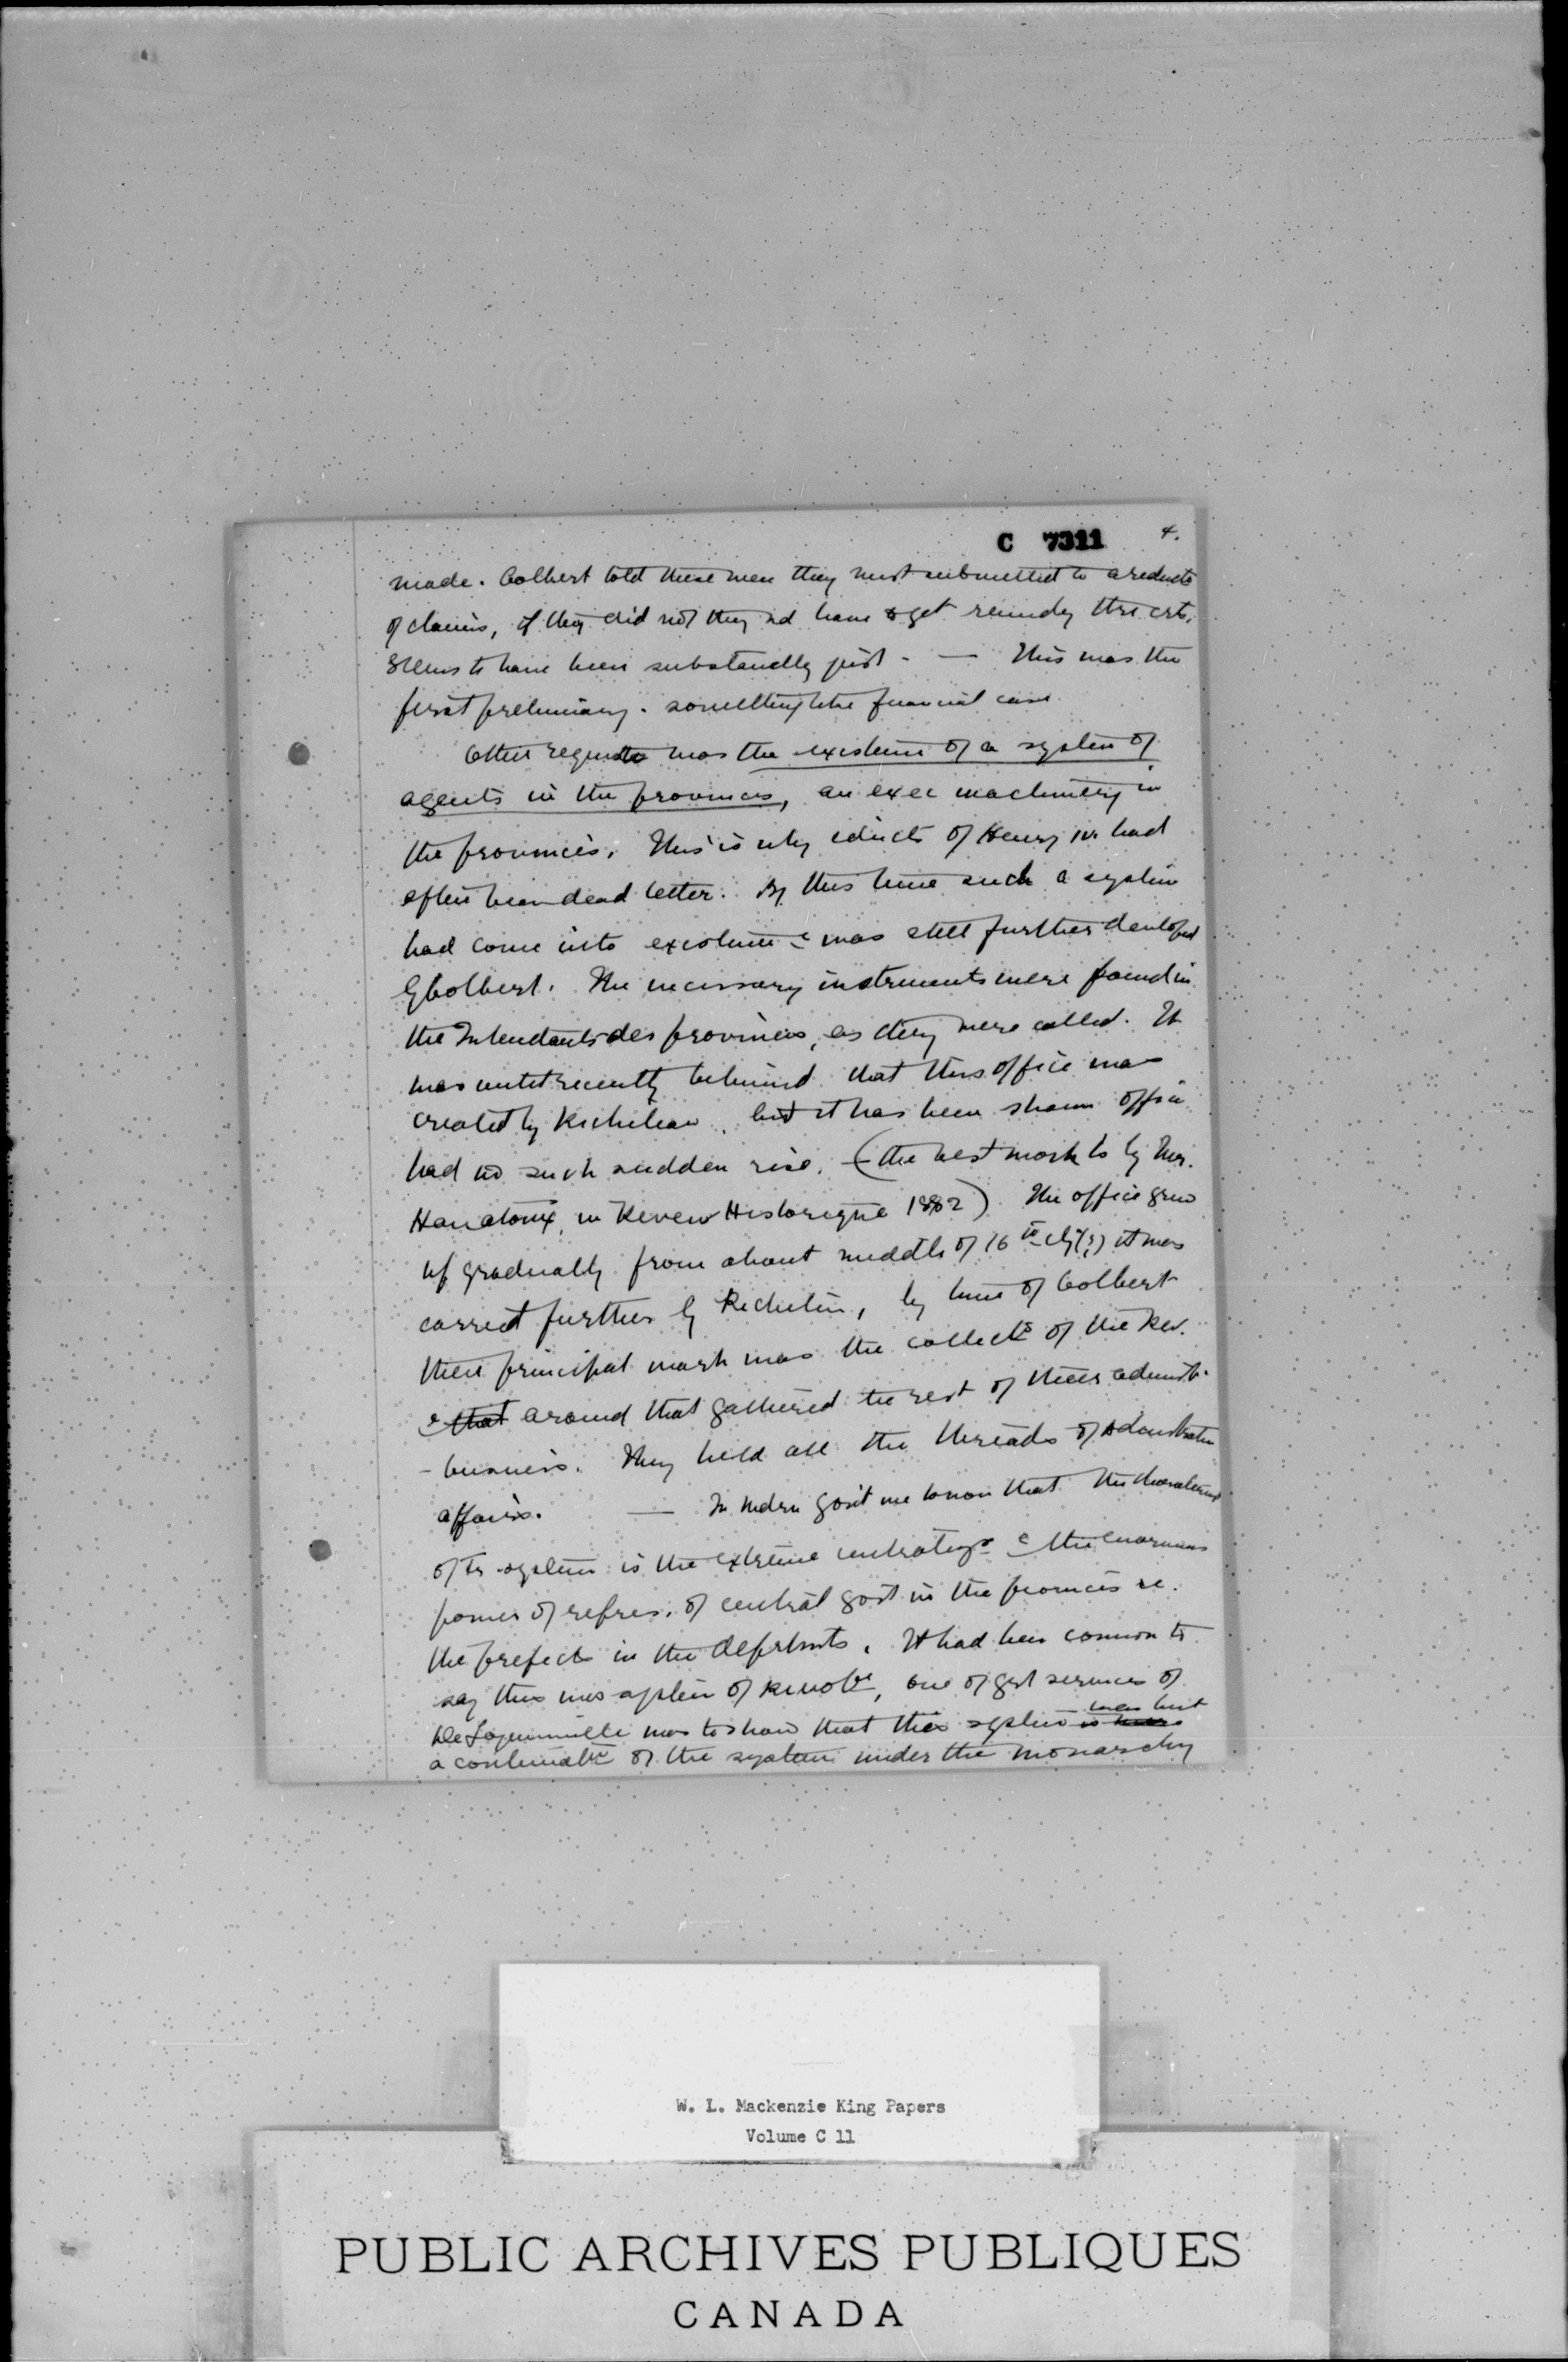 C 7311 4.
made. Colbert told these men they must submitted to a reducto
of claims, if they did not they wd have to get remedy thro' crts.
Seems to have been substantially just. — This was the
first preliminary. something like financial
Other requisite was the existence of a system of
agents in the provinces, an exec machinery in
the provinces. This is why edicts of Henry IV. had
often been dead letter. By this time such a system
had come into existence & was still further developed
by Colbert. The necessary instruments were found in
the Intendants des provinces, as they were called. It
was until recently believed that this office was
created by Richelieu, but it has been shown office
had no such sudden rise. (the best work is by Mr.
Hanotoux, in Revew Historique 1882) The office grew
up gradually from about middle of 16th cty(?) it was
carried further by Richelieu, by time of Colbert
their principal work was the collectn of the Rev.
& that around that gathered the rest of their adminstr.
- business. They held all the threads of adminstrative
affairs. — In modern gov't we know that the
of Fr. system is the extreme & the enormous
power of repres. of central govt in the provinces re.
the prefects in the deprtmts. It had been common to
say this was system of Revoltn, one of grt services of
De was to show that this system is was but
a continuatn of the system under the monarchy
W. L. Mackenzie King Papers
Volume C 11
PUBLIC ARCHIVES PUBLIQUES
CANADA